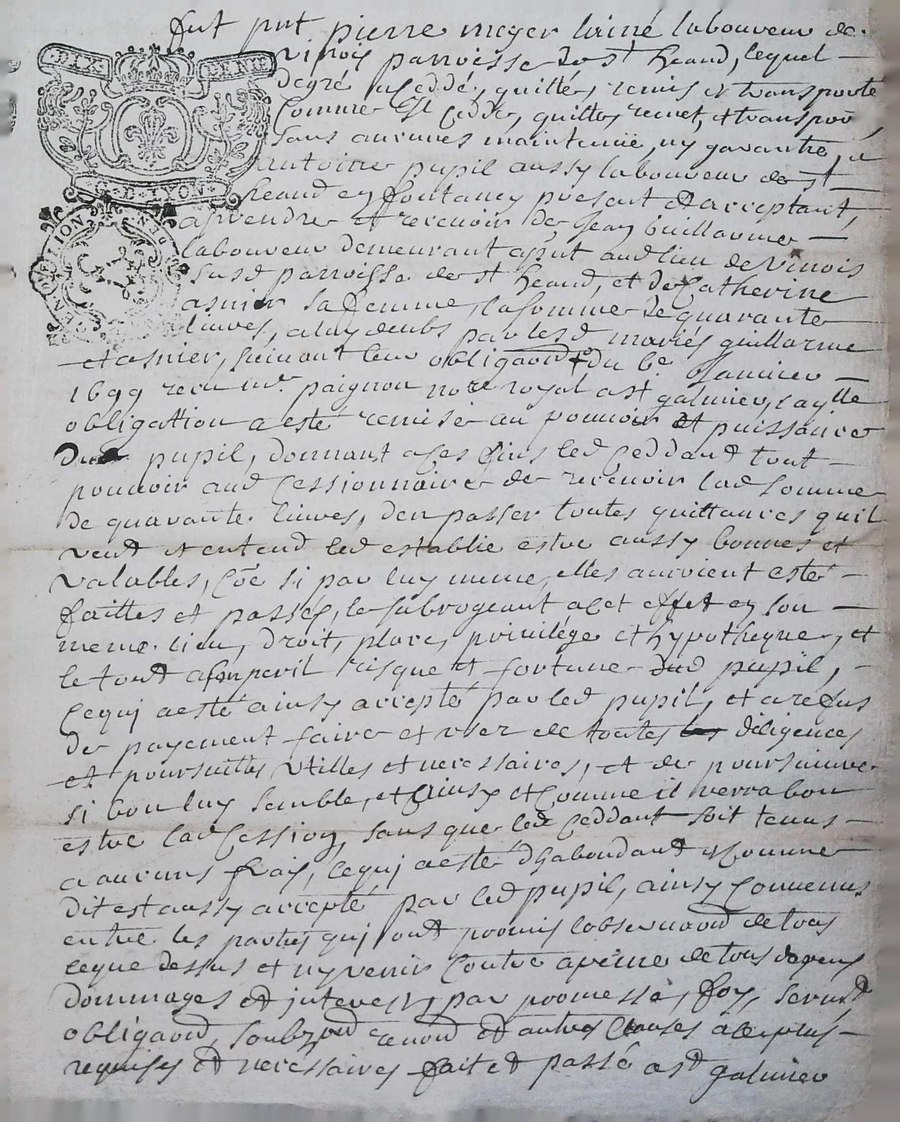 fut pnt pierre meyer laisné laboureur de
DIX DENIE
vinois parroisse de st heand, lequel
degré a ceddé, quitté, remis et transporté
comme est cedde, quitte, remet, et transporte,
sans aucunes maintenüe, ny garantie, a
antoine pupil aussy laboureur de st
G D LYON
heand ey fontaney present et acceptant,
aprendre et recevoir de Jean guillarme
laboureur demeurant apnt aud lieu de vinois
susd parroisse de st heand, et de Catherine
asnier sa femme, la somme de quarante
livres, a luy deubs par lesd mariés guillarme
et asnier, suivant leur obligaon du 6e Janvier
1699 receu me paignon nore royal a st galmier, laqlle
obligation a esté remise au pouvoir et puissance
dud pupil, donnant a ses fins led ceddant tout
pouvoir aud cessionnaire de recevoir lad somme
de quarante livres, d'en passer toutes quittances quil
veut et entend led establie estre aussy bonnes et
valables, coe si par luy meme, elles avoient esté
faittes et passés, le subrogeant a cet effet ey son
meme lieu, droit, place, privilége et hypotheque, et
le tout a son peril risque et fortune dud pupil,
ce quj a esté ainsy accepté par led pupil, et a refus
de payement faire et vser de toutes les diligences
et poursuittes vtilles et necessaires, et de poursuivre
si bon luy semble, et ainsy et comme il verra bon
estre lad cessioy, sans que led ceddant soit tenus
a aucuns frais, ce quj a esté d'haboudant et comme
dit est aussy accepté par led pupil, ainsy convenus
entre les parties quj ont promis l'observaon de tous
ce que dessus et ny venir contre apeine de tous depens
dommages et interests, par promesse, foy, sermt
obligaon, soubz et autres clauses a ce plus
requises et necessaires fait et passé a st galmier